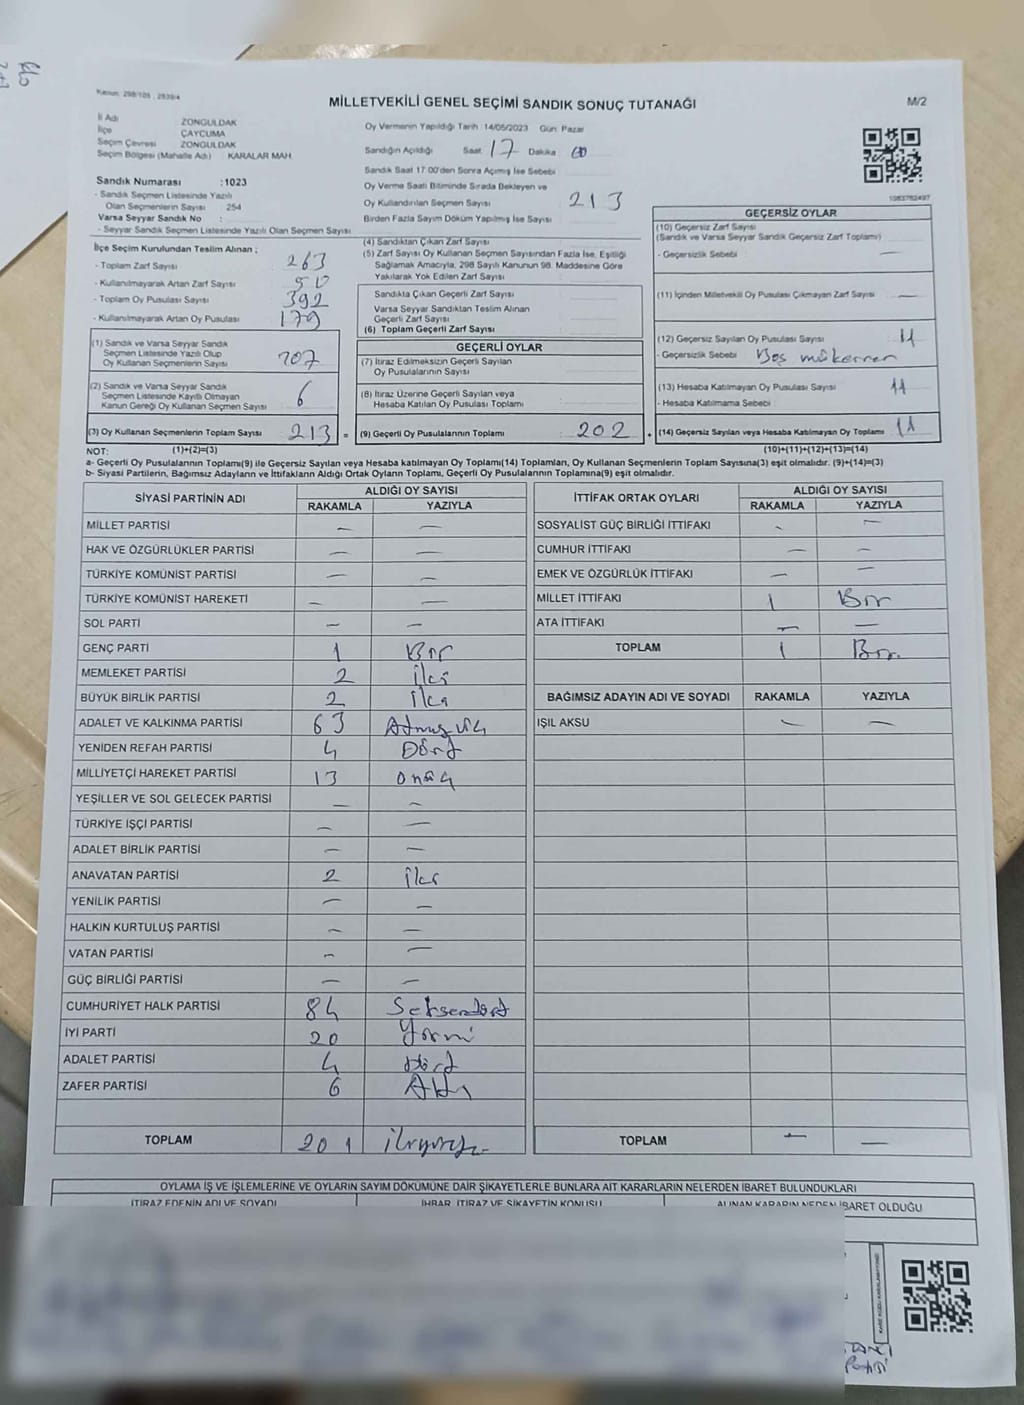 Kanun: 298/105 ; 2839/4
MİLLETVEKİLİ GENEL SEÇİMİ SANDIK SONUÇ TUTANAĞI
M/2
İl Adı ZONGULDAK
İlçe ÇAYCUMA
Seçim Çevresi ZONGULDAK
Seçim Bölgesi (Mahalle Adı) KARALAR MAH.
Sandık Numarası :1023
- Sandık Seçmen Listesinde Yazılı
Olan Seçmenlerin Sayısı 254
Varsa Seyyar Sandık No :
- Seyyar Sandık Seçmen Listesinde Yazılı Olan Seçmen Sayısı
Oy Vermenin Yapıldığı Tarih :14/05/2023 Gün: Pazar
Sandığın Açıldığı Saat 17 Dakika 00
Sandık Saat 17:00'den Sonra Açılmış İse Sebebi
Oy Verme Saati Bitiminde Sırada Bekleyen ve
Oy Kullandırılan Seçmen Sayısı 213
Birden Fazla Sayım Döküm Yapılmış İse Sayısı
1083762497
İlçe Seçim Kurulundan Teslim Alınan ;
- Toplam Zarf Sayısı 263
- Kullanılmayarak Artan Zarf Sayısı 50
- Toplam Oy Pusulası Sayısı 392
- Kullanılmayarak Artan Oy Pusulası 179
(1) Sandık ve Varsa Seyyar Sandık
Seçmen Listesinde Yazılı Olup
Oy Kullanan Seçmenlerin Sayısı 207
(2) Sandık ve Varsa Seyyar Sandık
Seçmen Listesinde Kayıtlı Olmayan
Kanun Gereği Oy Kullanan Seçmen Sayısı 6
(3) Oy Kullanan Seçmenlerin Toplam Sayısı 213 =
(4) Sandıktan Çıkan Zarf Sayısı
(5) Zarf Sayısı Oy Kullanan Seçmen Sayısından Fazla İse, Eşitliği
Sağlamak Amacıyla, 298 Sayılı Kanunun 98. Maddesine Göre
Yakılarak Yok Edilen Zarf Sayısı
Sandıkta Çıkan Geçerli Zarf Sayısı
Varsa Seyyar Sandıktan Teslim Alınan
Geçerli Zarf Sayısı
(6) Toplam Geçerli Zarf Sayısı
GEÇERLİ OYLAR
(7) İtiraz Edilmeksizin Geçerli Sayılan
Oy Pusulalarının Sayısı
(8) İtiraz Üzerine Geçerli Sayılan veya
Hesaba Katılan Oy Pusulası Toplamı
(9) Geçerli Oy Pusulalarının Toplamı : 202 +
GEÇERSİZ OYLAR
(10) Geçersiz Zarf Sayısı
(Sandık ve Varsa Seyyar Sandık Geçersiz Zarf Toplamı)
- Geçersizlik Sebebi —
(11) İçinden Milletvekili Oy Pusulası Çıkmayan Zarf Sayısı —
(12) Geçersiz Sayılan Oy Pusulası Sayısı 11
- Geçersizlik Sebebi Boş mükerrer
(13) Hesaba Katılmayan Oy Pusulası Sayısı 11
- Hesaba Katılmama Sebebi
(14) Geçersiz Sayılan veya Hesaba Katılmayan Oy Toplamı 11
NOT: (1)+(2)=(3) (10)+(11)+(12)+(13)=(14)
a- Geçerli Oy Pusulalarının Toplamı(9) ile Geçersiz Sayılan veya Hesaba katılmayan Oy Toplamı(14) Toplamları, Oy Kullanan Seçmenlerin Toplam Sayısına(3) eşit olmalıdır. (9)+(14)=(3)
b- Siyasi Partilerin, Bağımsız Adayların ve İttifakların Aldığı Ortak Oyların Toplamı, Geçerli Oy Pusulalarının Toplamına(9) eşit olmalıdır.
SİYASİ PARTİNİN ADI ALDIĞI OY SAYISI
RAKAMLA YAZIYLA
MİLLET PARTİSİ — —
HAK VE ÖZGÜRLÜKLER PARTİSİ — —
TÜRKİYE KOMÜNİST PARTİSİ — —
TÜRKİYE KOMÜNİST HAREKETİ — —
SOL PARTİ — —
GENÇ PARTİ 1 Bir
MEMLEKET PARTİSİ 2 İki
BÜYÜK BİRLİK PARTİSİ 2 İki
ADALET VE KALKINMA PARTİSİ 63 Atmış üç
YENİDEN REFAH PARTİSİ 4 Dört
MİLLİYETÇİ HAREKET PARTİSİ 13 onüç
YEŞİLLER VE SOL GELECEK PARTİSİ — —
TÜRKİYE İŞÇİ PARTİSİ — —
ADALET BİRLİK PARTİSİ — —
ANAVATAN PARTİSİ 2 İki
YENİLİK PARTİSİ — —
HALKIN KURTULUŞ PARTİSİ — —
VATAN PARTİSİ — —
GÜÇ BİRLİĞİ PARTİSİ — —
CUMHURİYET HALK PARTİSİ 84 Seksendört
İYİ PARTİ 20 Yirmi
ADALET PARTİSİ 4 Dört
ZAFER PARTİSİ 6 Altı
TOPLAM 201
İTTİFAK ORTAK OYLARI ALDIĞI OY SAYISI
RAKAMLA YAZIYLA
SOSYALİST GÜÇ BİRLİĞİ İTTİFAKI — —
CUMHUR İTTİFAKI — —
EMEK VE ÖZGÜRLÜK İTTİFAKI — —
MİLLET İTTİFAKI 1 Bir
ATA İTTİFAKI — —
TOPLAM 1 Bir
BAĞIMSIZ ADAYIN ADI VE SOYADI RAKAMLA YAZIYLA
IŞIL AKSU — —
TOPLAM — —
OYLAMA İŞ VE İŞLEMLERİNE VE OYLARIN SAYIM DÖKÜMÜNE DAİR ŞİKAYETLERLE BUNLARA AİT KARARLARIN NELERDEN İBARET BULUNDUKLARI
İTİRAZ EDENİN ADI VE SOYADI İHBAR, İTİRAZ VE ŞİKAYETİN KONUSU ALINAN KARARIN NEDEN İBARET OLDUĞU